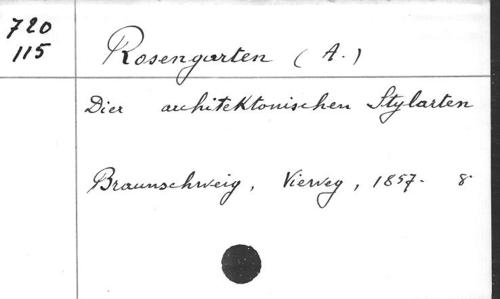 720
115
Rosengarten (A.)
Dier architektonischen Stylarten
Braunschweig, Vieweg, 1857. 8°